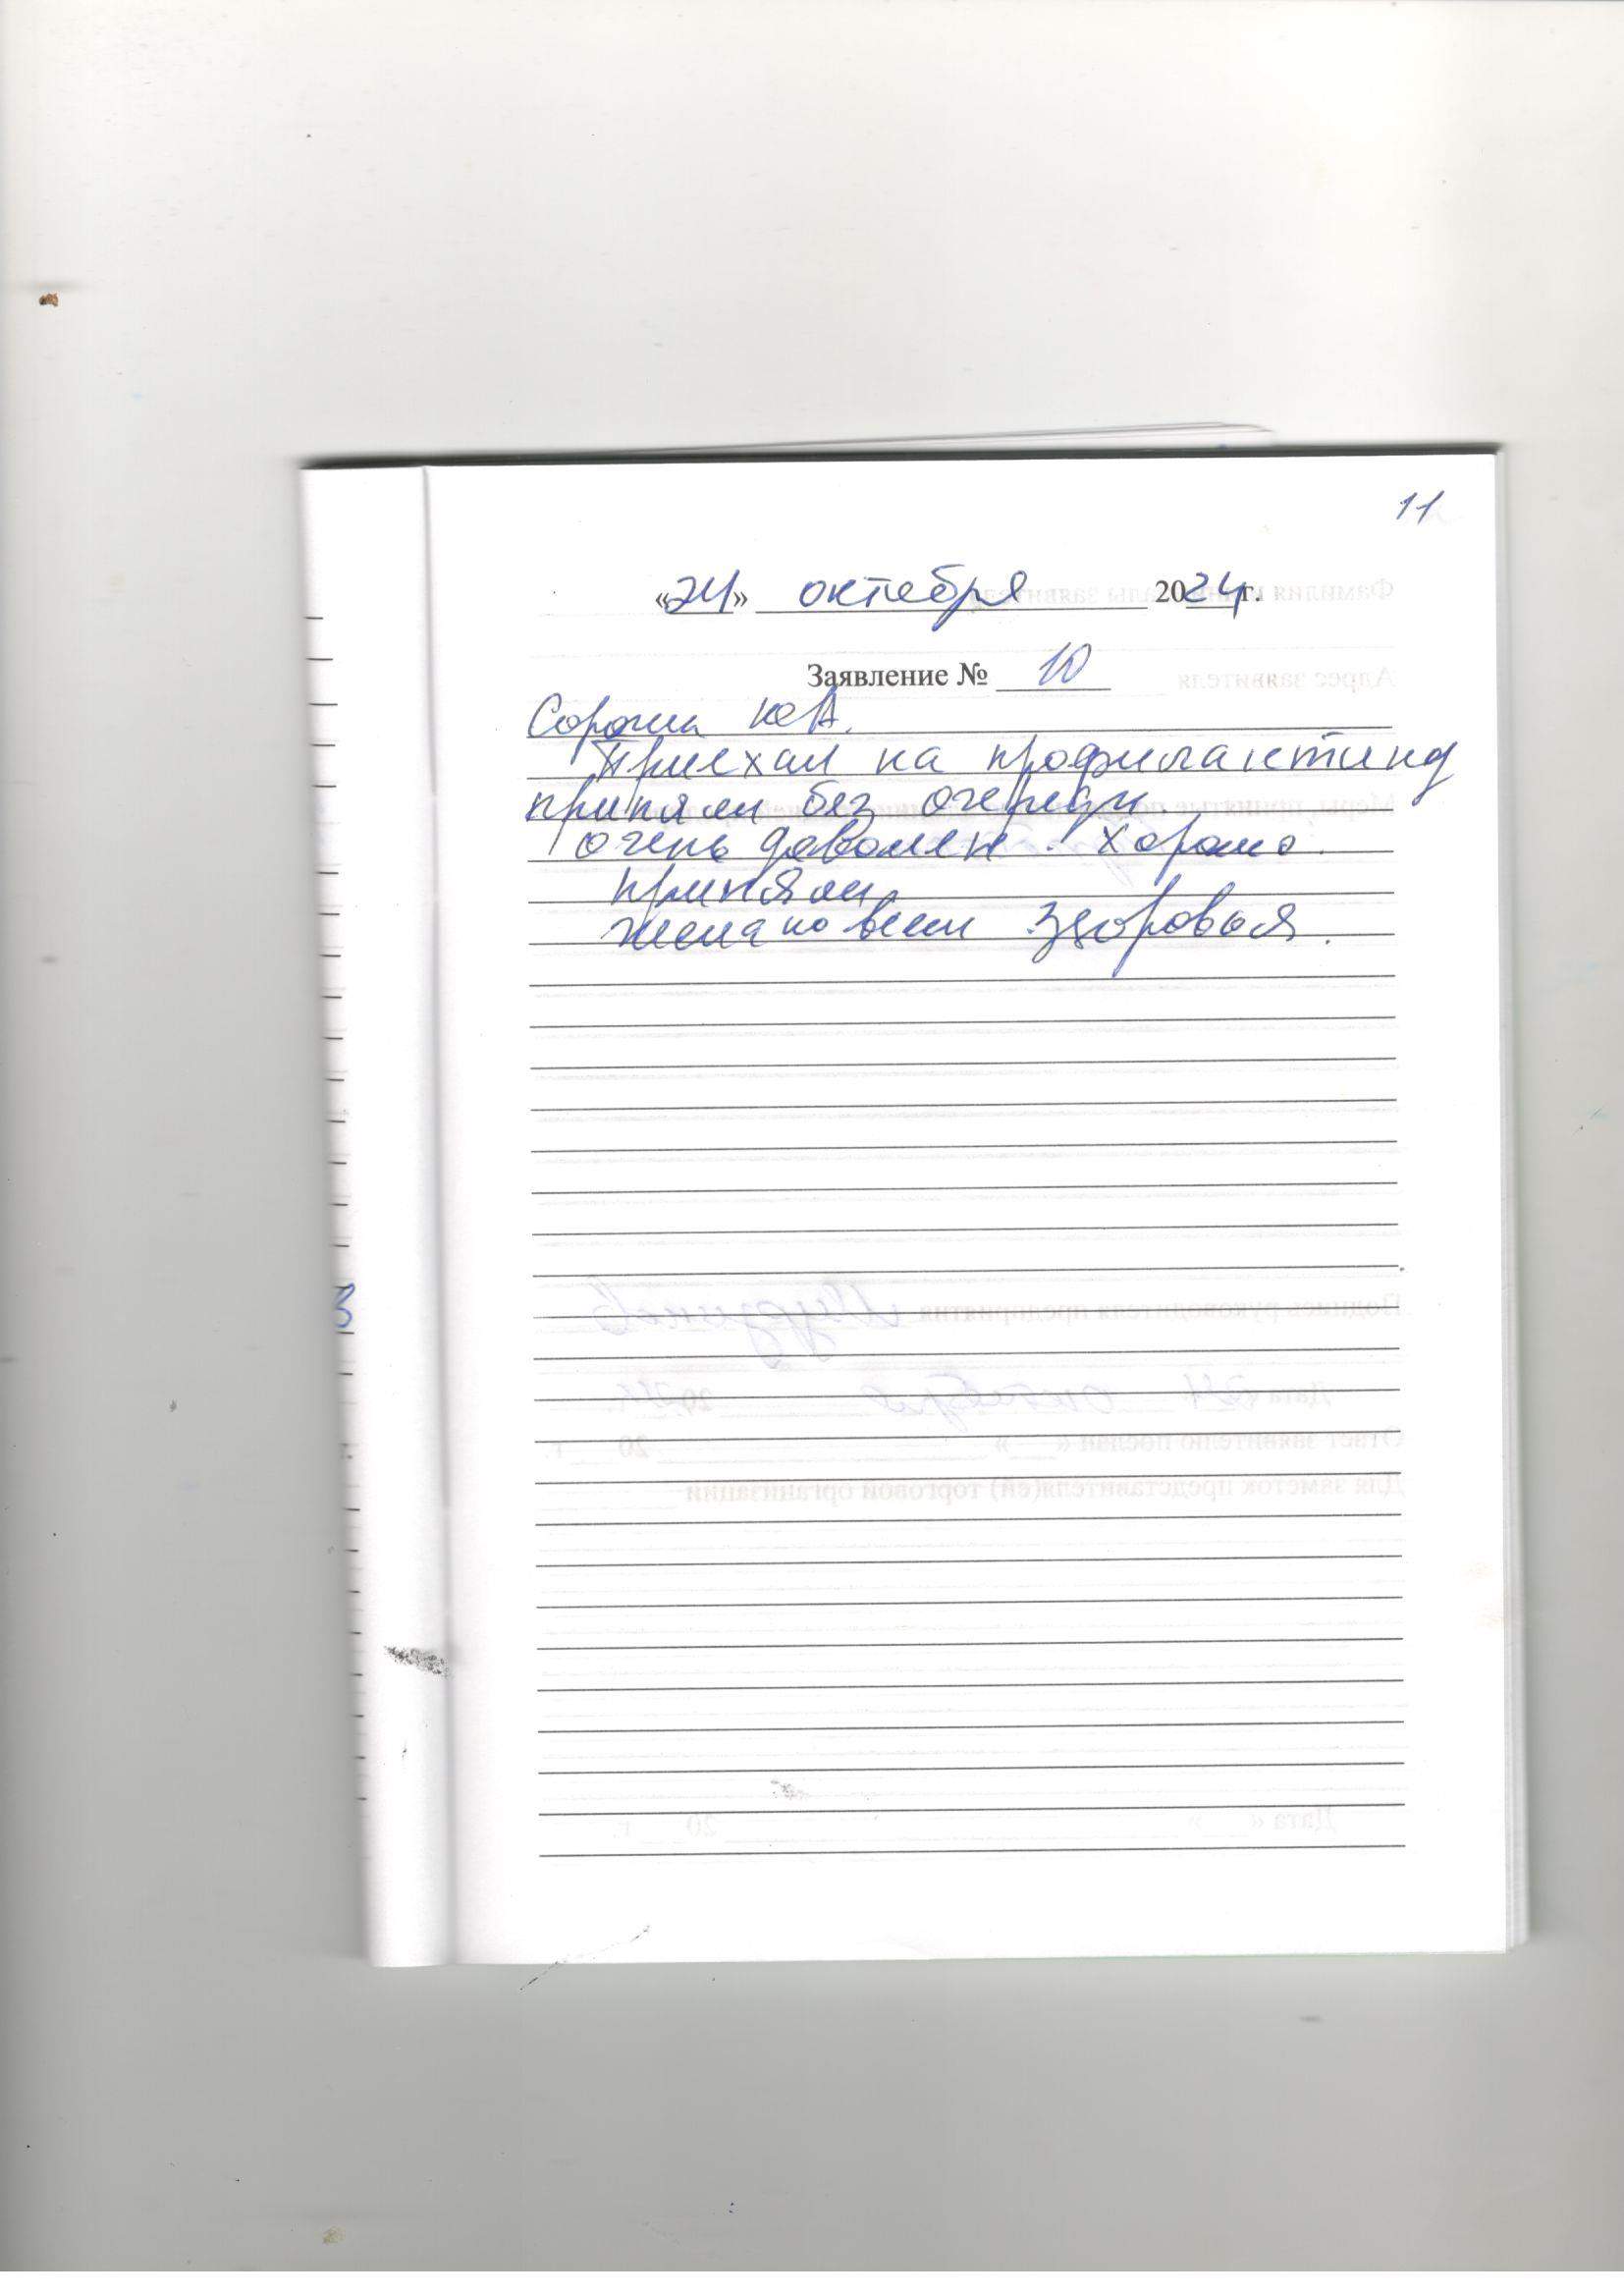 11
«24» октября 2024г.
Заявление № 10
Ю А.
Приехал на профилактику
приняли без очереди
очень доволен. Хорошо
приняли,
желаю всем здоровья.